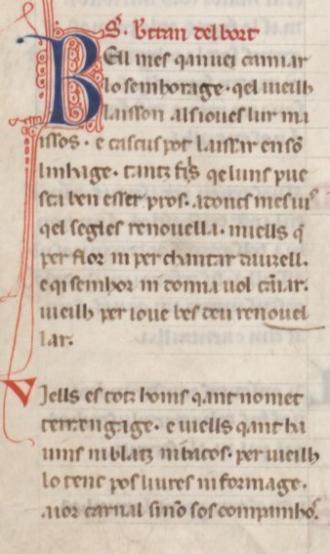 S'. Bertran del bort
BEll mes qan uei camiar
lo seinhorage. qel uieilh
laisson als ioues lur ma
issos. e cascus pot laissar en sō
linhage. tantz fils qe luns pue
sca ben esser pros. adoncs mes uis
qel segles renouella. miells q̄
per flor ni per chantar dauzell.
e qi seinhor ni donna uol camiar.
uieilh per ioue bes deu renouel
lar.
Viells es totz homs qant no met
terr en gage. e uiells qant ha
uins ni blatz ni bacos. per uieilh
lo tenc pos liures ni formage.
a ior carnal sinō sos companhos.